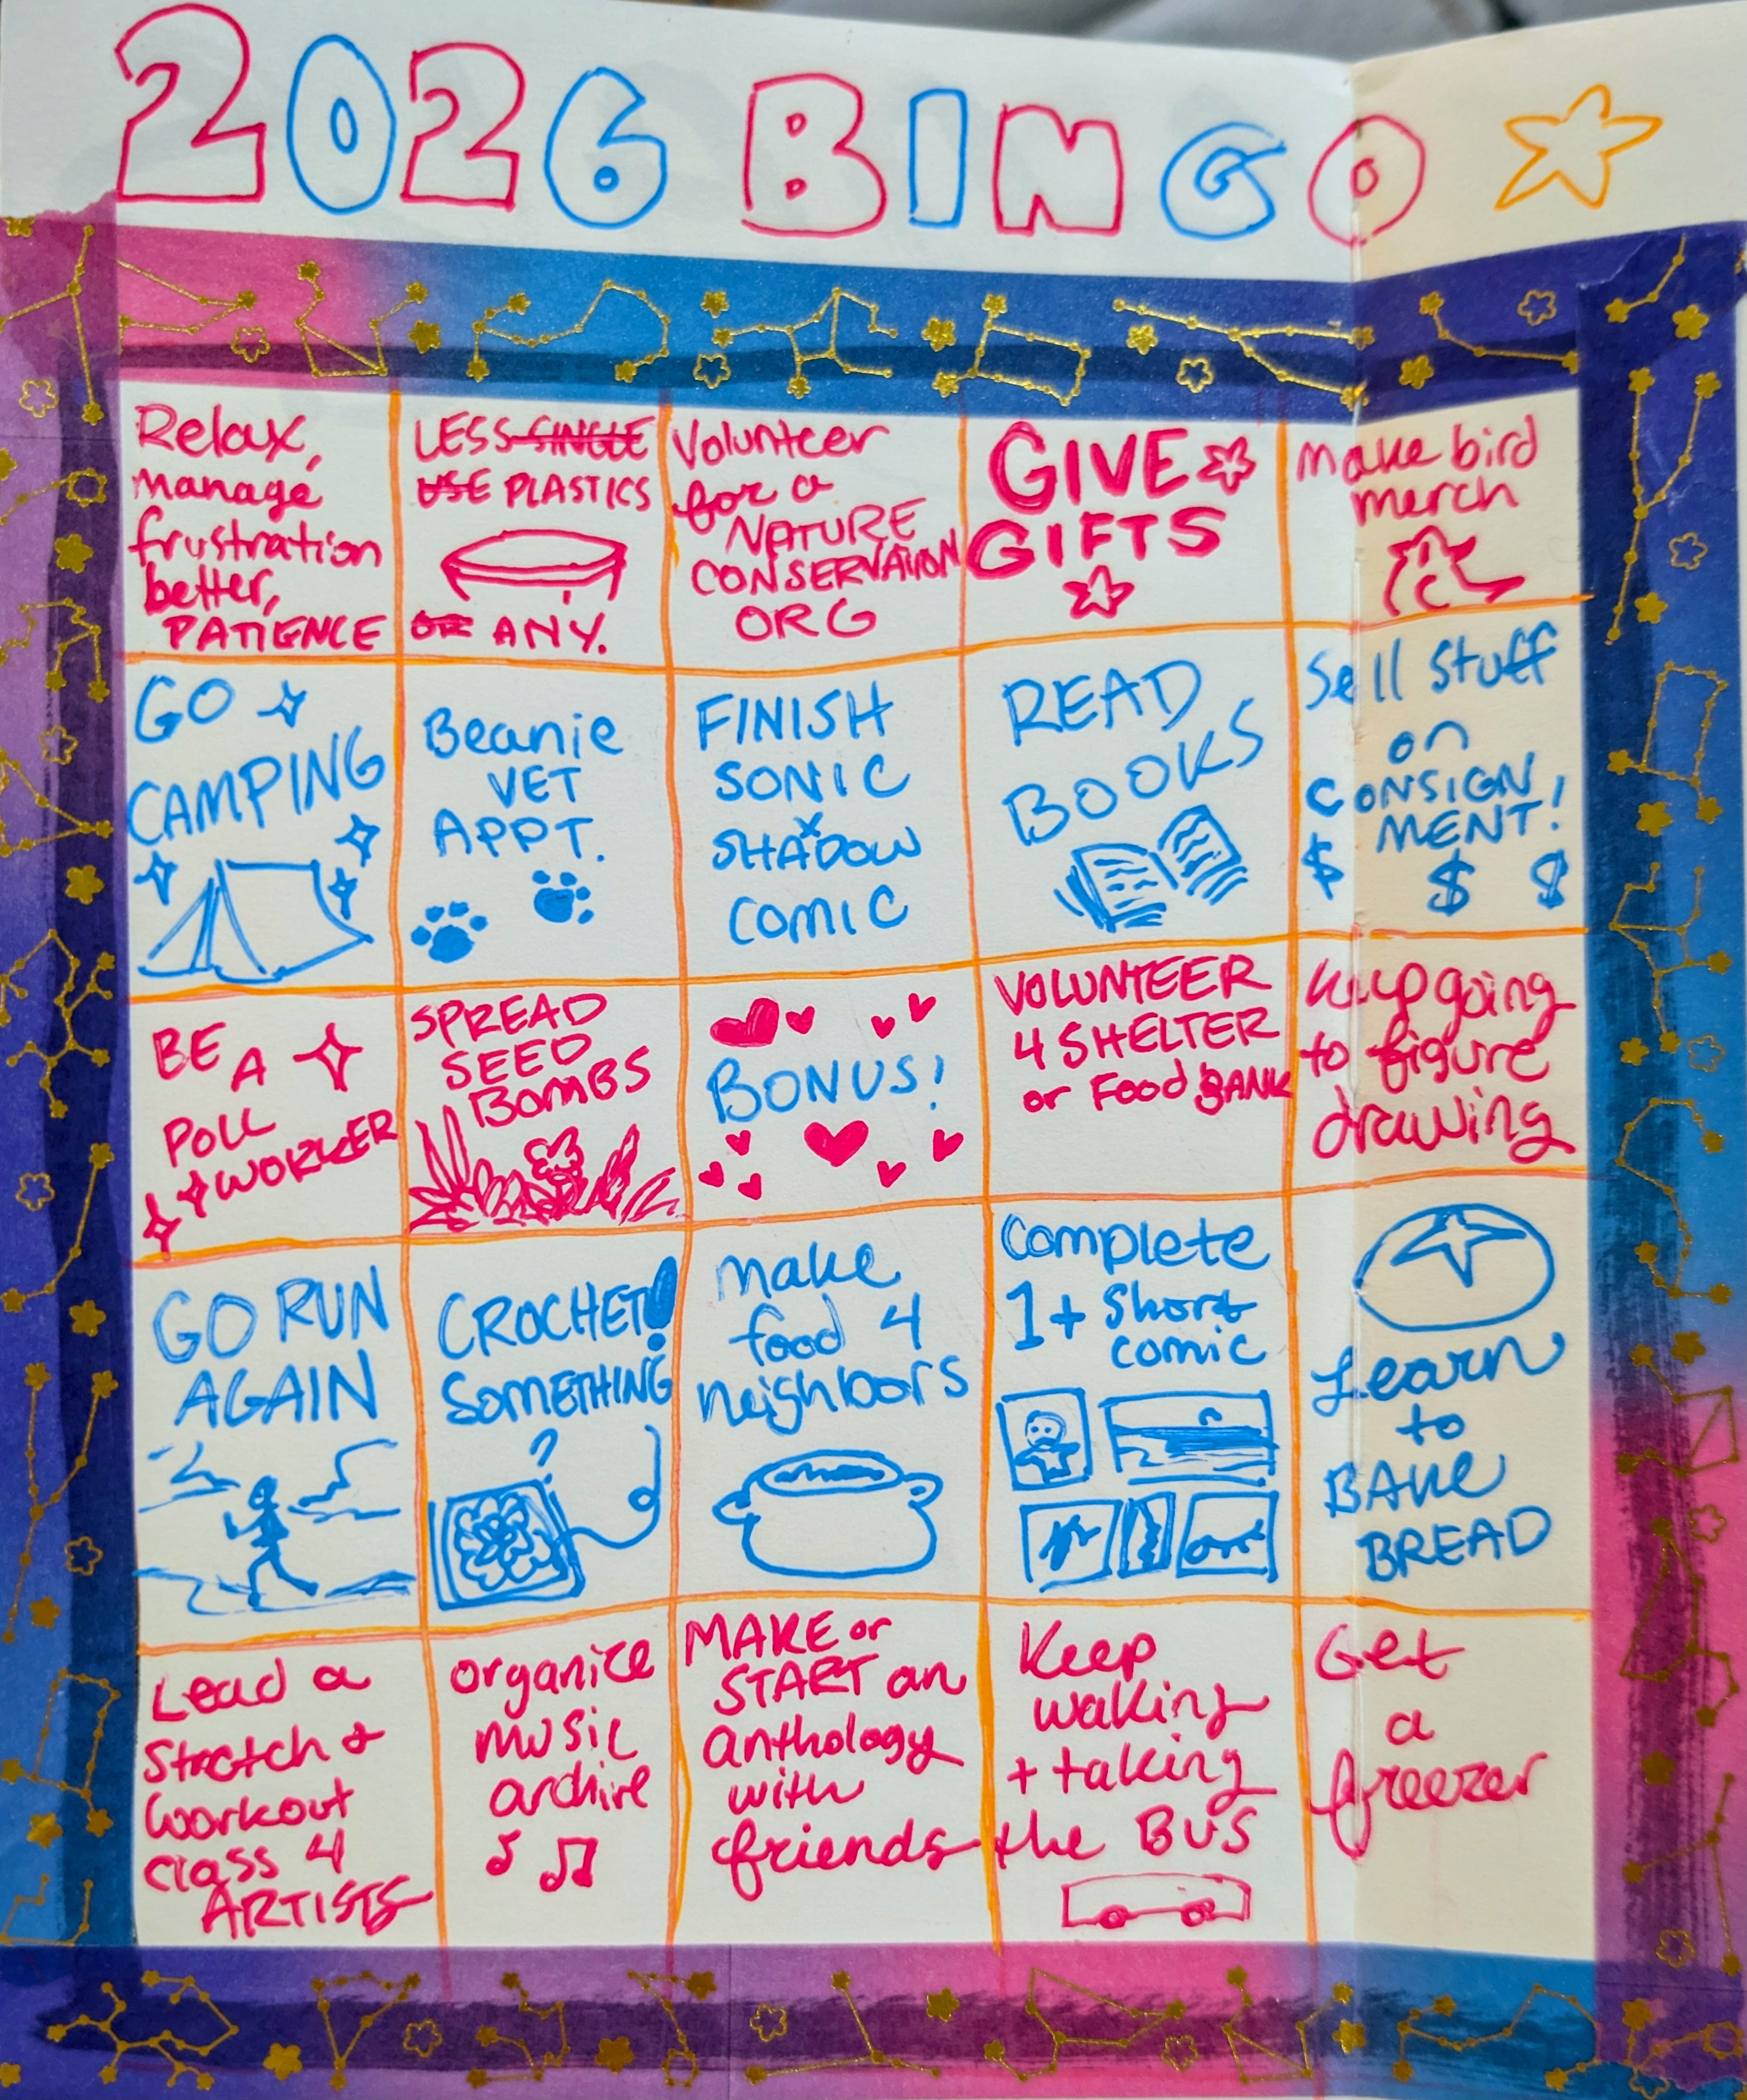 2026 BINGO
Relax,
manage
frustration
better,
PATIENCE
LESS SINGLE
USE PLASTICS
OR ANY.
Volunteer
for a
NATURE
CONSERVATION
ORG
GIVE
GIFTS
make bird
merch
GO
CAMPING
Beanie
VET
APPT.
FINISH
SONIC
x
SHADOW
COMIC
READ
BOOKS
Sell Stuff
on
CONSIGN
MENT!
$ $ $
BE A
POLL
WORKER
SPREAD
SEED
BOMBS
BONUS!
VOLUNTEER
4 SHELTER
or Food BANK
keep going
to figure
drawing
GO RUN
AGAIN
CROCHET!
SOMETHING
?
make
food 4
neighbors
Complete
1+ short
comic
Learn
to
BAKE
BREAD
Lead a
Stretch +
workout
class 4
ARTISTS
organize
music
archive
MAKE or
START an
anthology
with
friends
Keep
walking
+ taking
the BUS
Get
a
freezer